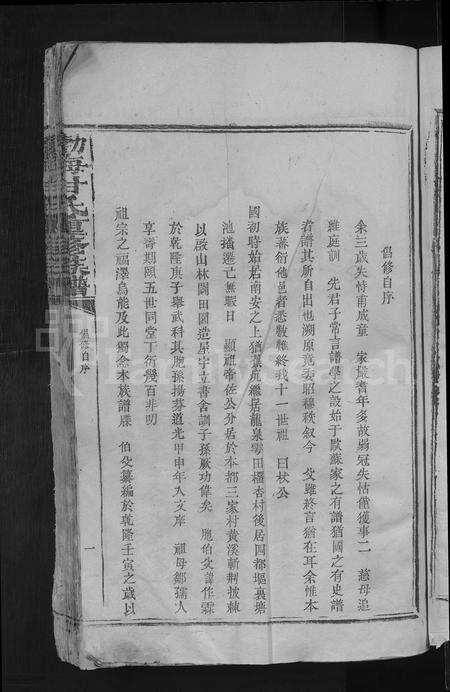 倡修自序
余三歲失恃甫成童　家嚴耆年多故弱冠失怙僅獲事二　慈母追
維庭訓　先君子常言譜學之設始于歐蘇家之有譜猶國之有史譜
者譜其所自出也溯原竟委昭穆秩叙今　父雖終言猶在耳余惟本
族蕃衍他邑者悉數難終我十一世祖　曰杖公
國初時始居南安之上猶　繼居龍泉雩田櫑杏村後居四都堀裏塘
池播遷已無暇日　顯祖帝佐公分居於本都三家村黃溪斬荆披棘
以啟山林闢田園造屋宇立書舍訓子孫厥功偉矣　胞伯父諱作霖
於乾隆庚子舉武科其胞孫揚芬道光甲申年入文庠　祖母鄒孺人
享壽期頤五世同堂丁衍幾百非叨
祖宗之福澤烏能及此獨念本族譜牒　伯父纂編於乾隆壬寅之歲以
勃海甘氏重修族譜
倡修自序
一